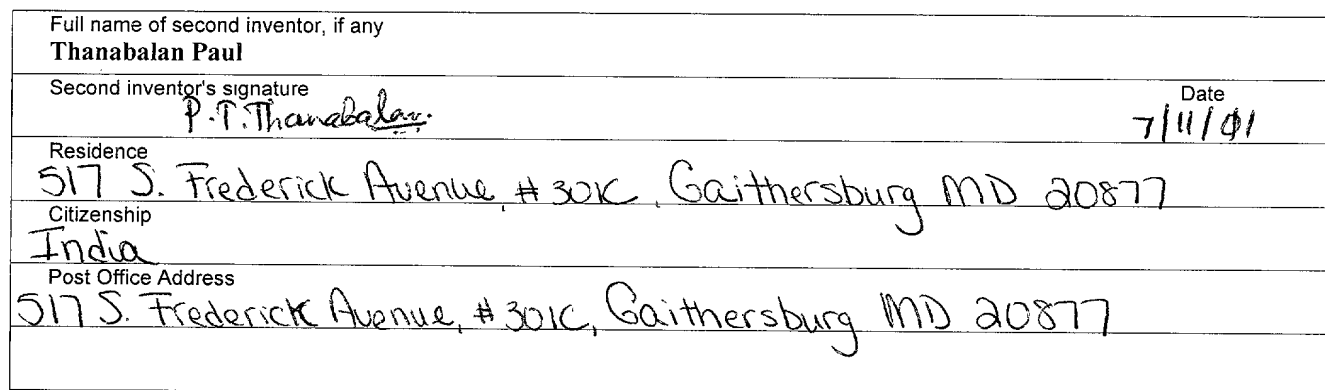 Full name of second inventor, if any
Thanabalan Paul
Second inventor's signature Date
P.T. Thanabalan. 7/11/01
Residence
517 S. Frederick Avenue, # 301C, Gaithersburg MD 20877
Citizenship
India
Post Office Address
517 S. Frederick Avenue, # 301C, Gaithersburg MD 20877